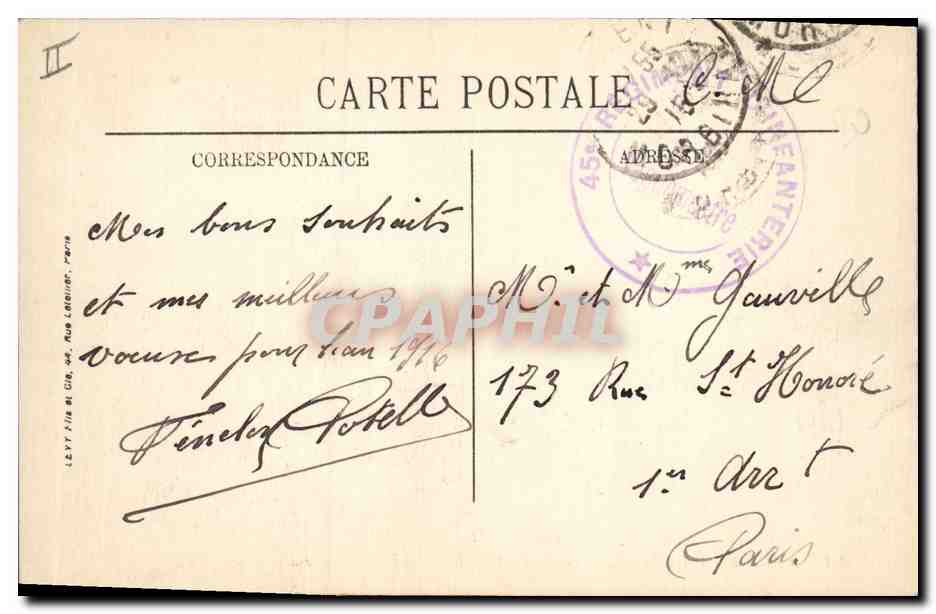 II
CARTE POSTALE
C. M.
CORRESPONDANCE
ADRESSE
45e RÉGIMENT D'INFANTERIE
MORBIHAN
Mes bons souhaits
et mes meilleurs
voeux pour l'an 1916
Fénelon Potell
Mr. et Mme Gauville
173 Rue St Honoré
1er Arrt
Paris
LEVY Fils et Cie, 44, Rue Letellier, Paris
CPAPHIL